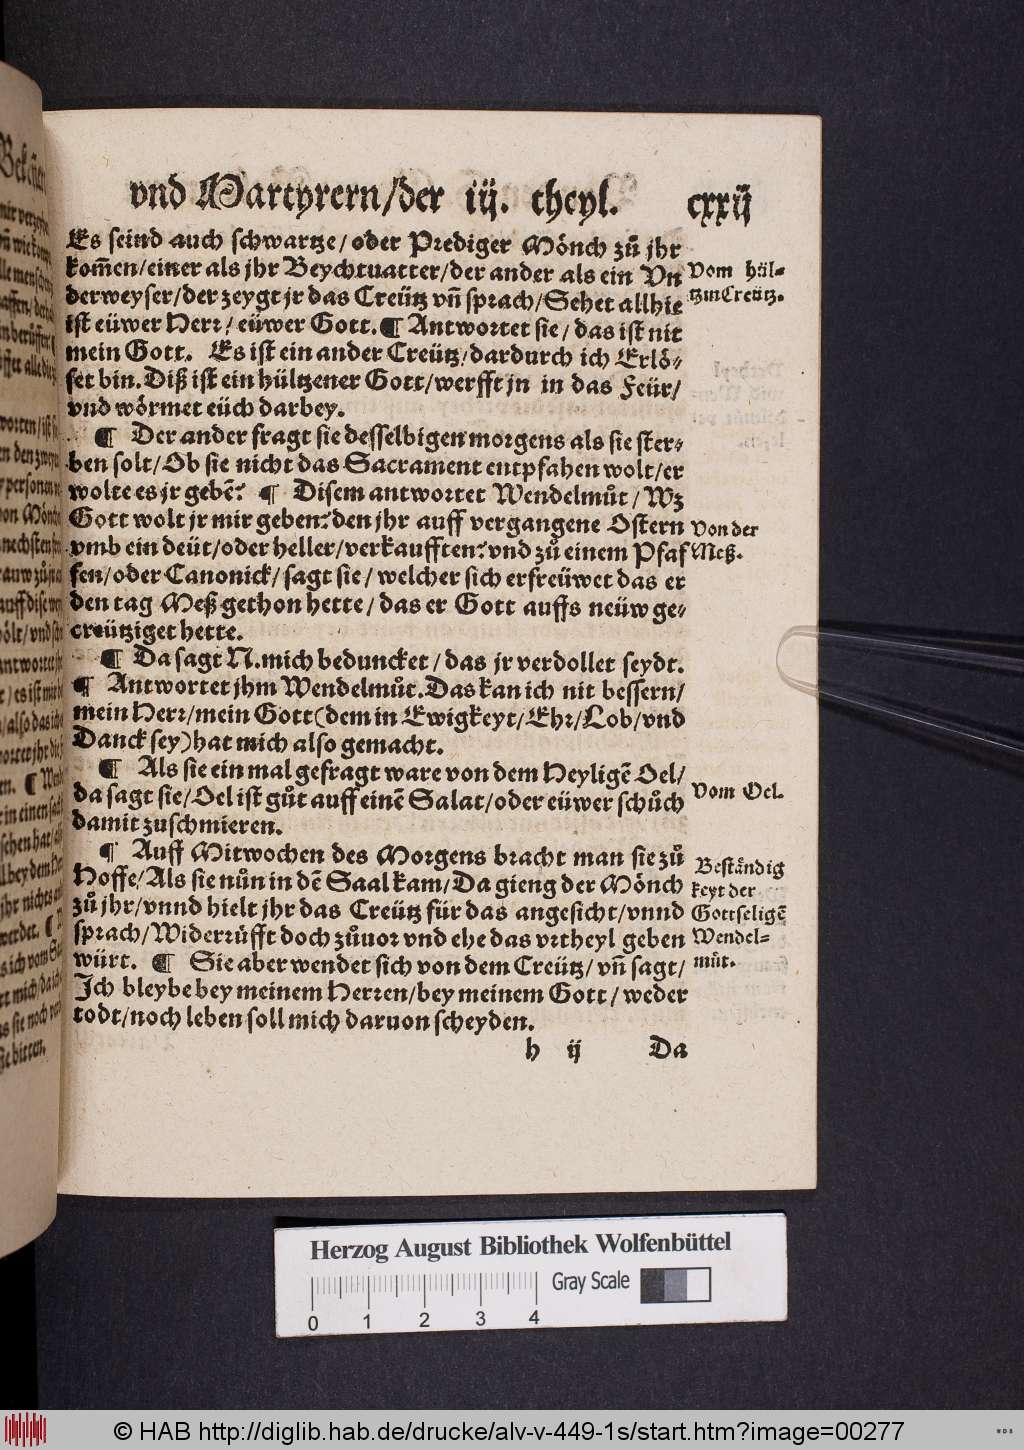 vnd Martyrern/der iij. theyl. cxxij
Es seind auch schwartze/oder Prediger Mönch zů jhr
kom̃en/einer als jhr Beychtuatter/der ander als ein Vn
derweyser/der zeygt jr das Creütz vñ sprach/Sehet allhie
ist eüwer Herr/eüwer Gott. ¶ Antwortet sie/das ist nit
mein Gott. Es ist ein ander Creütz/dardurch ich Erlö-
set bin. Diß ist ein hültzener Gott/werfft jn in das Feür/
vnd wörmet eüch darbey.
Vom hül-
tzin Creütz.
¶ Der ander fragt sie desselbigen morgens als sie ster-
ben solt/Ob sie nicht das Sacrament entpfahen wolt/er
wolte es jr gebē? ¶ Disem antwortet Wendelmůt/Wz
Gott wolt jr mir geben? den jhr auff vergangene Ostern
vmb ein deüt/oder heller/verkaufften? vnd zů einem Pfaf
fen/oder Canonick/sagt sie/welcher sich erfreüwet das er
den tag Meß gethon hette/das er Gott auffs neüw ge-
creütziget hette.
Von der
Meß.
¶ Da sagt N. mich beduncket/das jr verdollet seydt.
¶ Antwortet jhm Wendelmůt. Das kan ich nit bessern/
mein Herr/mein Gott (dem in Ewigkeyt/Ehr/Lob/vnd
Danck sey) hat mich also gemacht.
¶ Als sie ein mal gefragt ware von dem Heyligē Oel/
da sagt sie/Oel ist gůt auff einē Salat/oder eüwer schůch
damit zuschmieren.
Vom Oel.
¶ Auff Mitwochen des Morgens bracht man sie zů
Hoffe/Als sie nůn in dē Saal kam/Da gieng der Mönch
zů jhr/vnnd hielt jhr das Creütz für das angesicht/vnnd
sprach/Widerrüfft doch zůuor vnd ehe das vrtheyl geben
würt. ¶ Sie aber wendet sich von dem Creütz/vñ sagt/
Ich bleybe bey meinem Herren/bey meinem Gott/weder
todt/noch leben soll mich daruon scheyden.
Beständig
keyt der
Gottseligē
Wendel-
můt.
h ij Da
Herzog August Bibliothek Wolfenbüttel
Gray Scale
0 1 2 3 4
© HAB http://diglib.hab.de/drucke/alv-v-449-1s/start.htm?image=00277